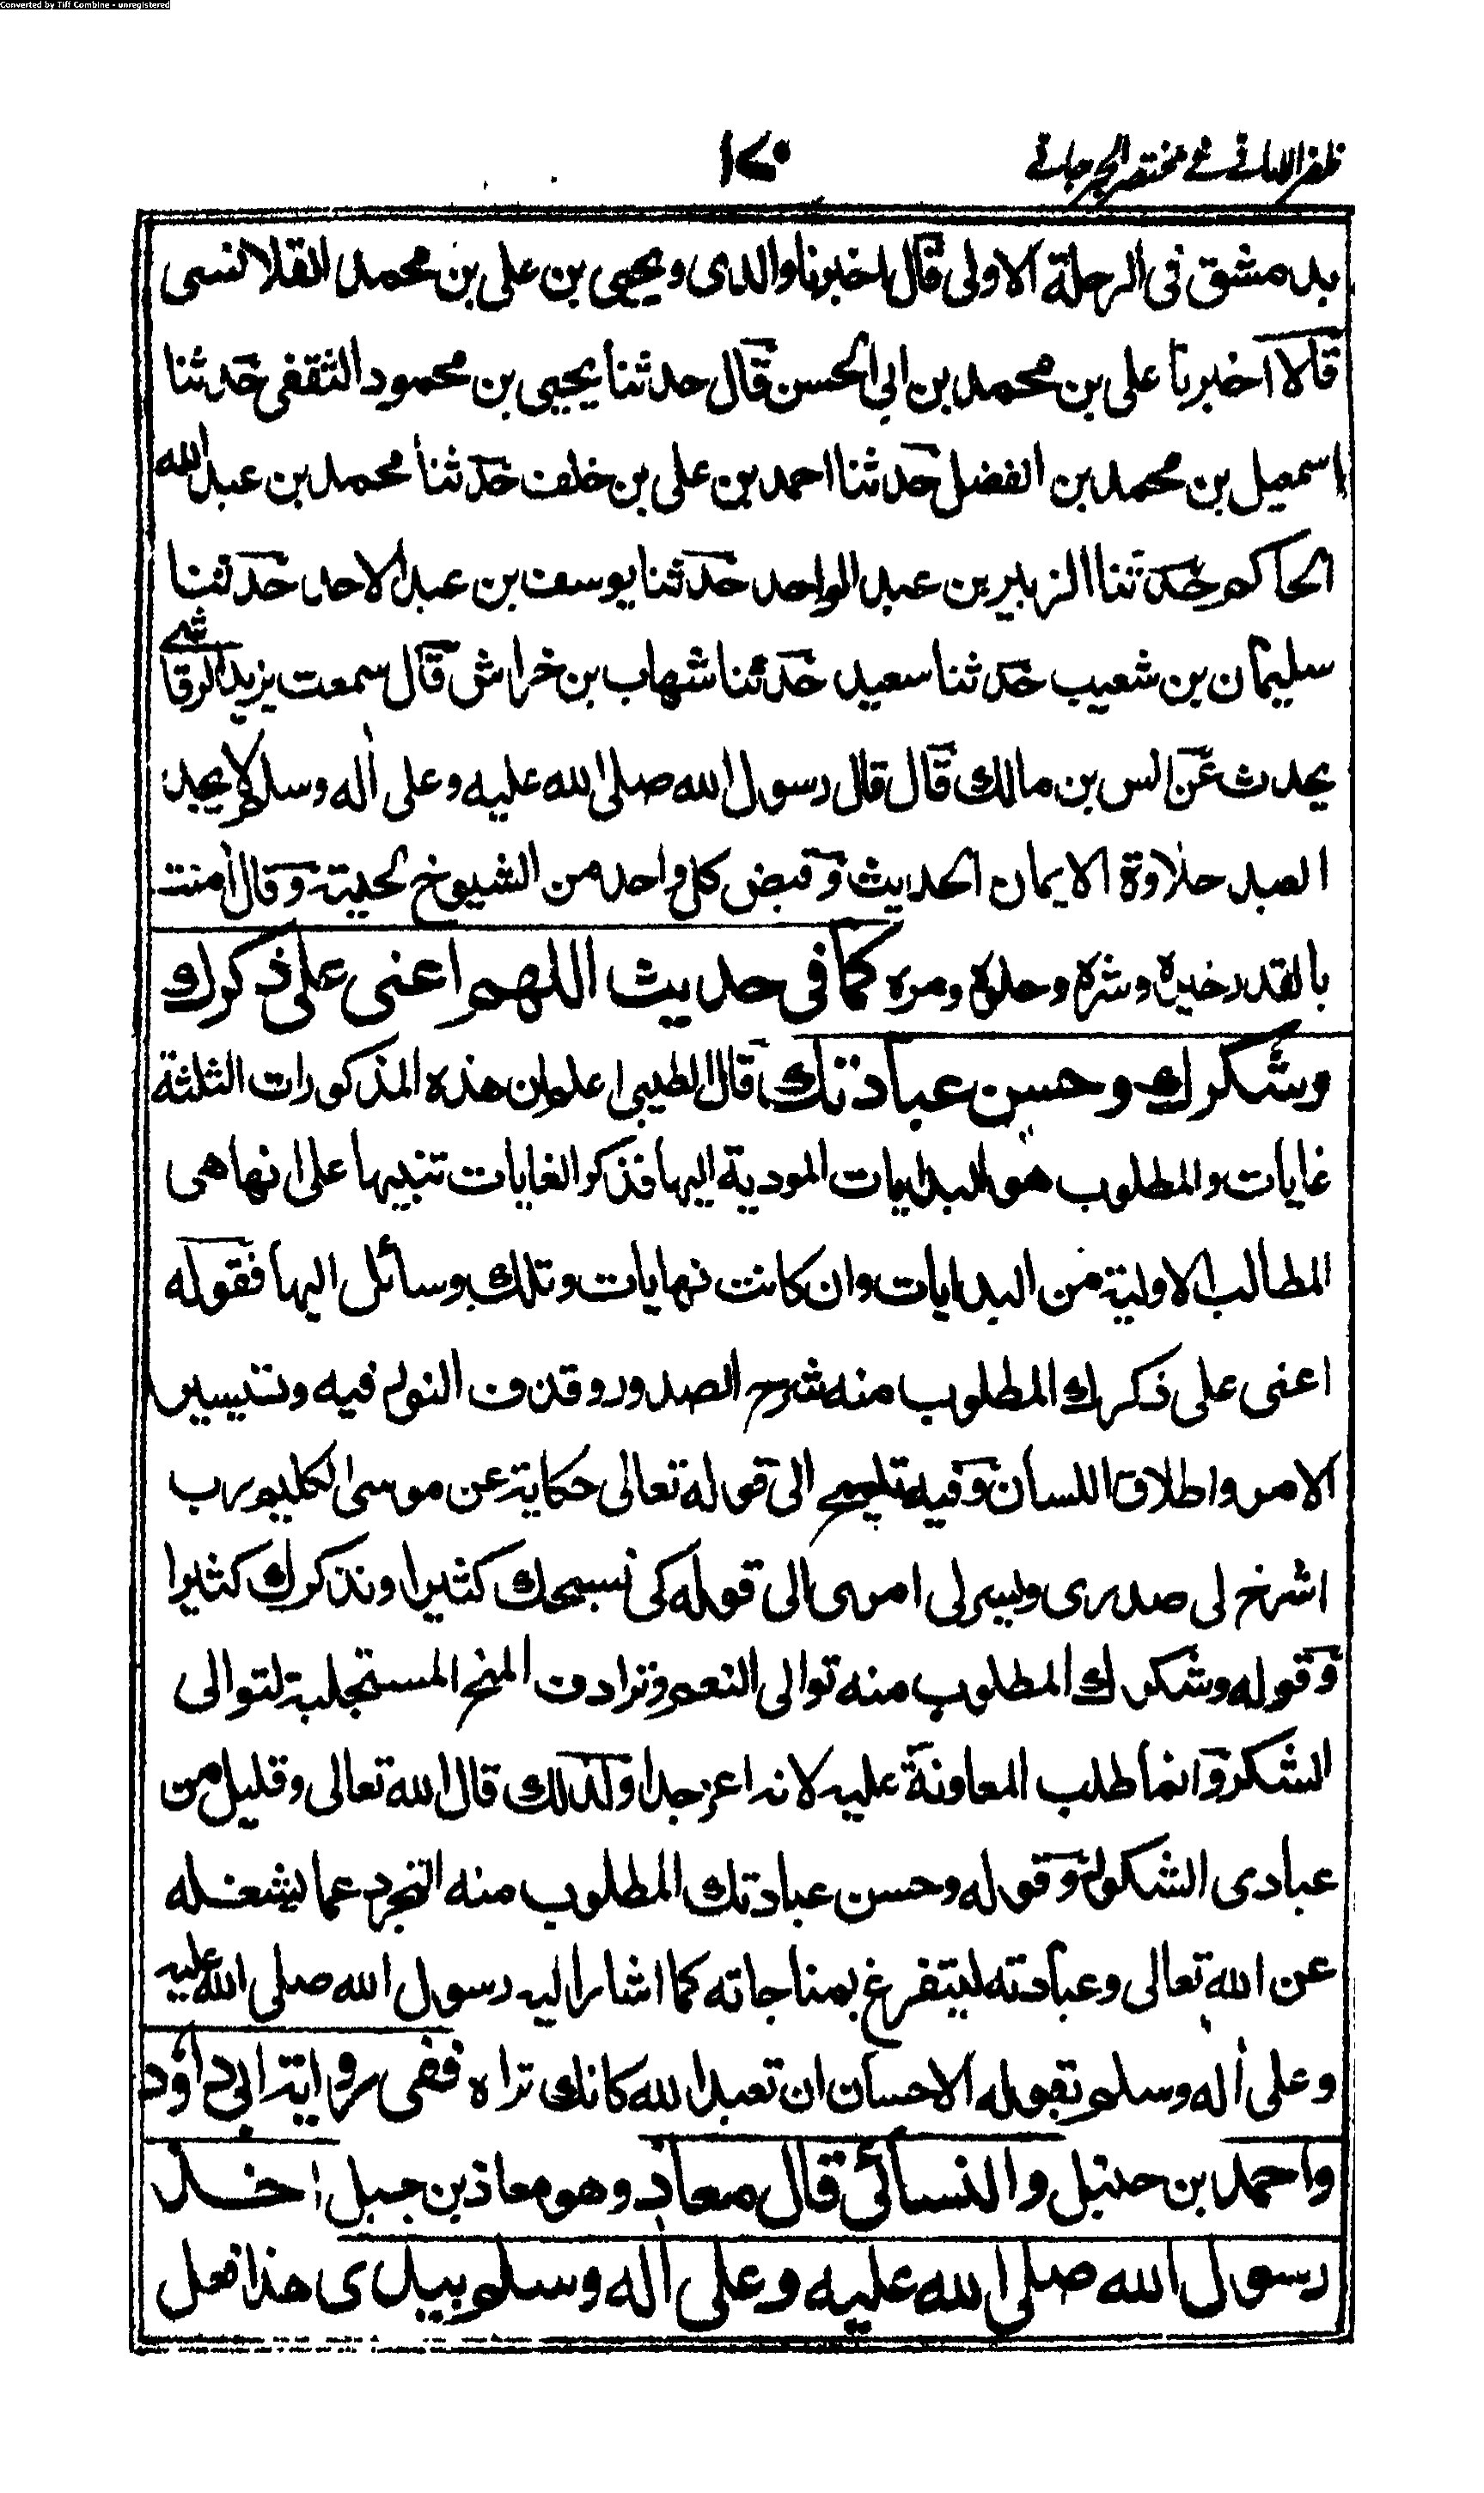 Converted by Tiff Combine - unregistered
ظفر الامانی فی مختصر الجرجانی
١٧٠
بدمشق فی الرحلة الاولی قال اخبرنا والدی ویحیی بن علی بن محمد القلانسی
قالا اخبرنا علی بن محمد بن ابی الحسن قال حدثنا یحیی بن محمود الثقفی حدثنا
اسمعیل بن محمد بن الفضل حدثنا احمد بن علی بن خلف حدثنا محمد بن عبد الله
الحاکم حدثنا الزبیر بن عبد الواحد حدثنا یوسف بن عبد الاحد حدثنا
سلیمان بن شعیب حدثنا سعید حدثنا شهاب بن خراش قال سمعت یزید الرقاشی
یحدث عن انس بن مالك قال قال رسول الله صلی الله علیه وعلی اٰله وسلم لا یجد
العبد حلاوة الایمان الحدیث وقبض کل واحد من الشیوخ لحیته وقال اٰمنت
بالقدر خیره وشره وحلوه ومره کما فی حدیث اللهم اعنی علی ذکرك
وشکرك وحسن عبادتك قال الطیبی اعلم ان هذه المذکورات الثلثة
غایات والمطلوب هو البدایات المودیة الیها فذکر الغایات تنبیها علی انها هی
المطالب الاولیة من البدایات وان کانت نهایات وتلك وسائل الیها فقوله
اعنی علی ذکرك المطلوب منه شرح الصدور وقذف النور فیه وتیسیر
الامر واطلاق اللسان وفیه تلمیح الی قوله تعالی حکایة عن موسی الکلیم رب
اشرح لی صدری ویسر لی امری الی قوله کی نسبحك کثیرا ونذکرك کثیرا
وقوله وشکرك المطلوب منه توالی النعم وترادف المنح المستجلبة لتوالی
الشکر وانما طلب المعاونة علیه لانه اعز جدا ولذلك قال الله تعالی وقلیل من
عبادی الشکور وقوله وحسن عبادتك المطلوب منه التجرد عما یشغله
عن الله تعالی وعبادته لیتفرغ بمناجاته کما اشار الیه رسول الله صلی الله علیه
وعلی اٰله وسلم بقوله الاحسان ان تعبد الله کانك تراه ففی روایة ابی داؤد
واحمد بن حنبل والنسائی قال معاذ وهو معاذ بن جبل اخذ
رسول الله صلی الله علیه وعلی اٰله وسلم بیدی هذا فعل